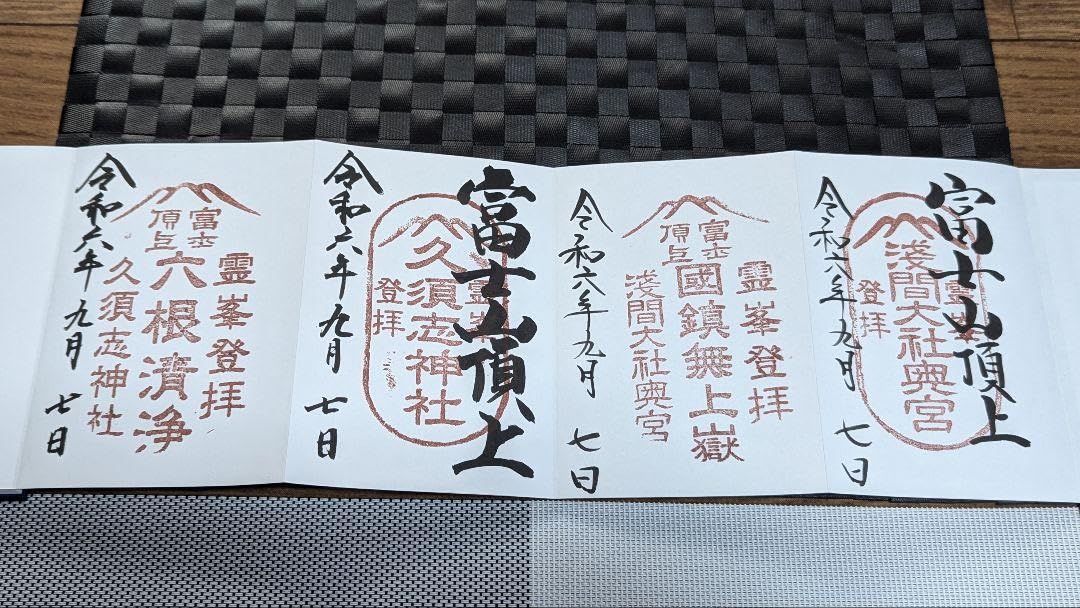 富士山頂上
霊峯登拝
浅間大社奥宮
令和六年九月七日
霊峯登拝
富士頂上
國鎮無上嶽
浅間大社奥宮
令和六年九月七日
富士山頂上
霊峯登拝
久須志神社
令和六年九月七日
霊峯登拝
富士頂上
六根清浄
久須志神社
令和六年九月七日